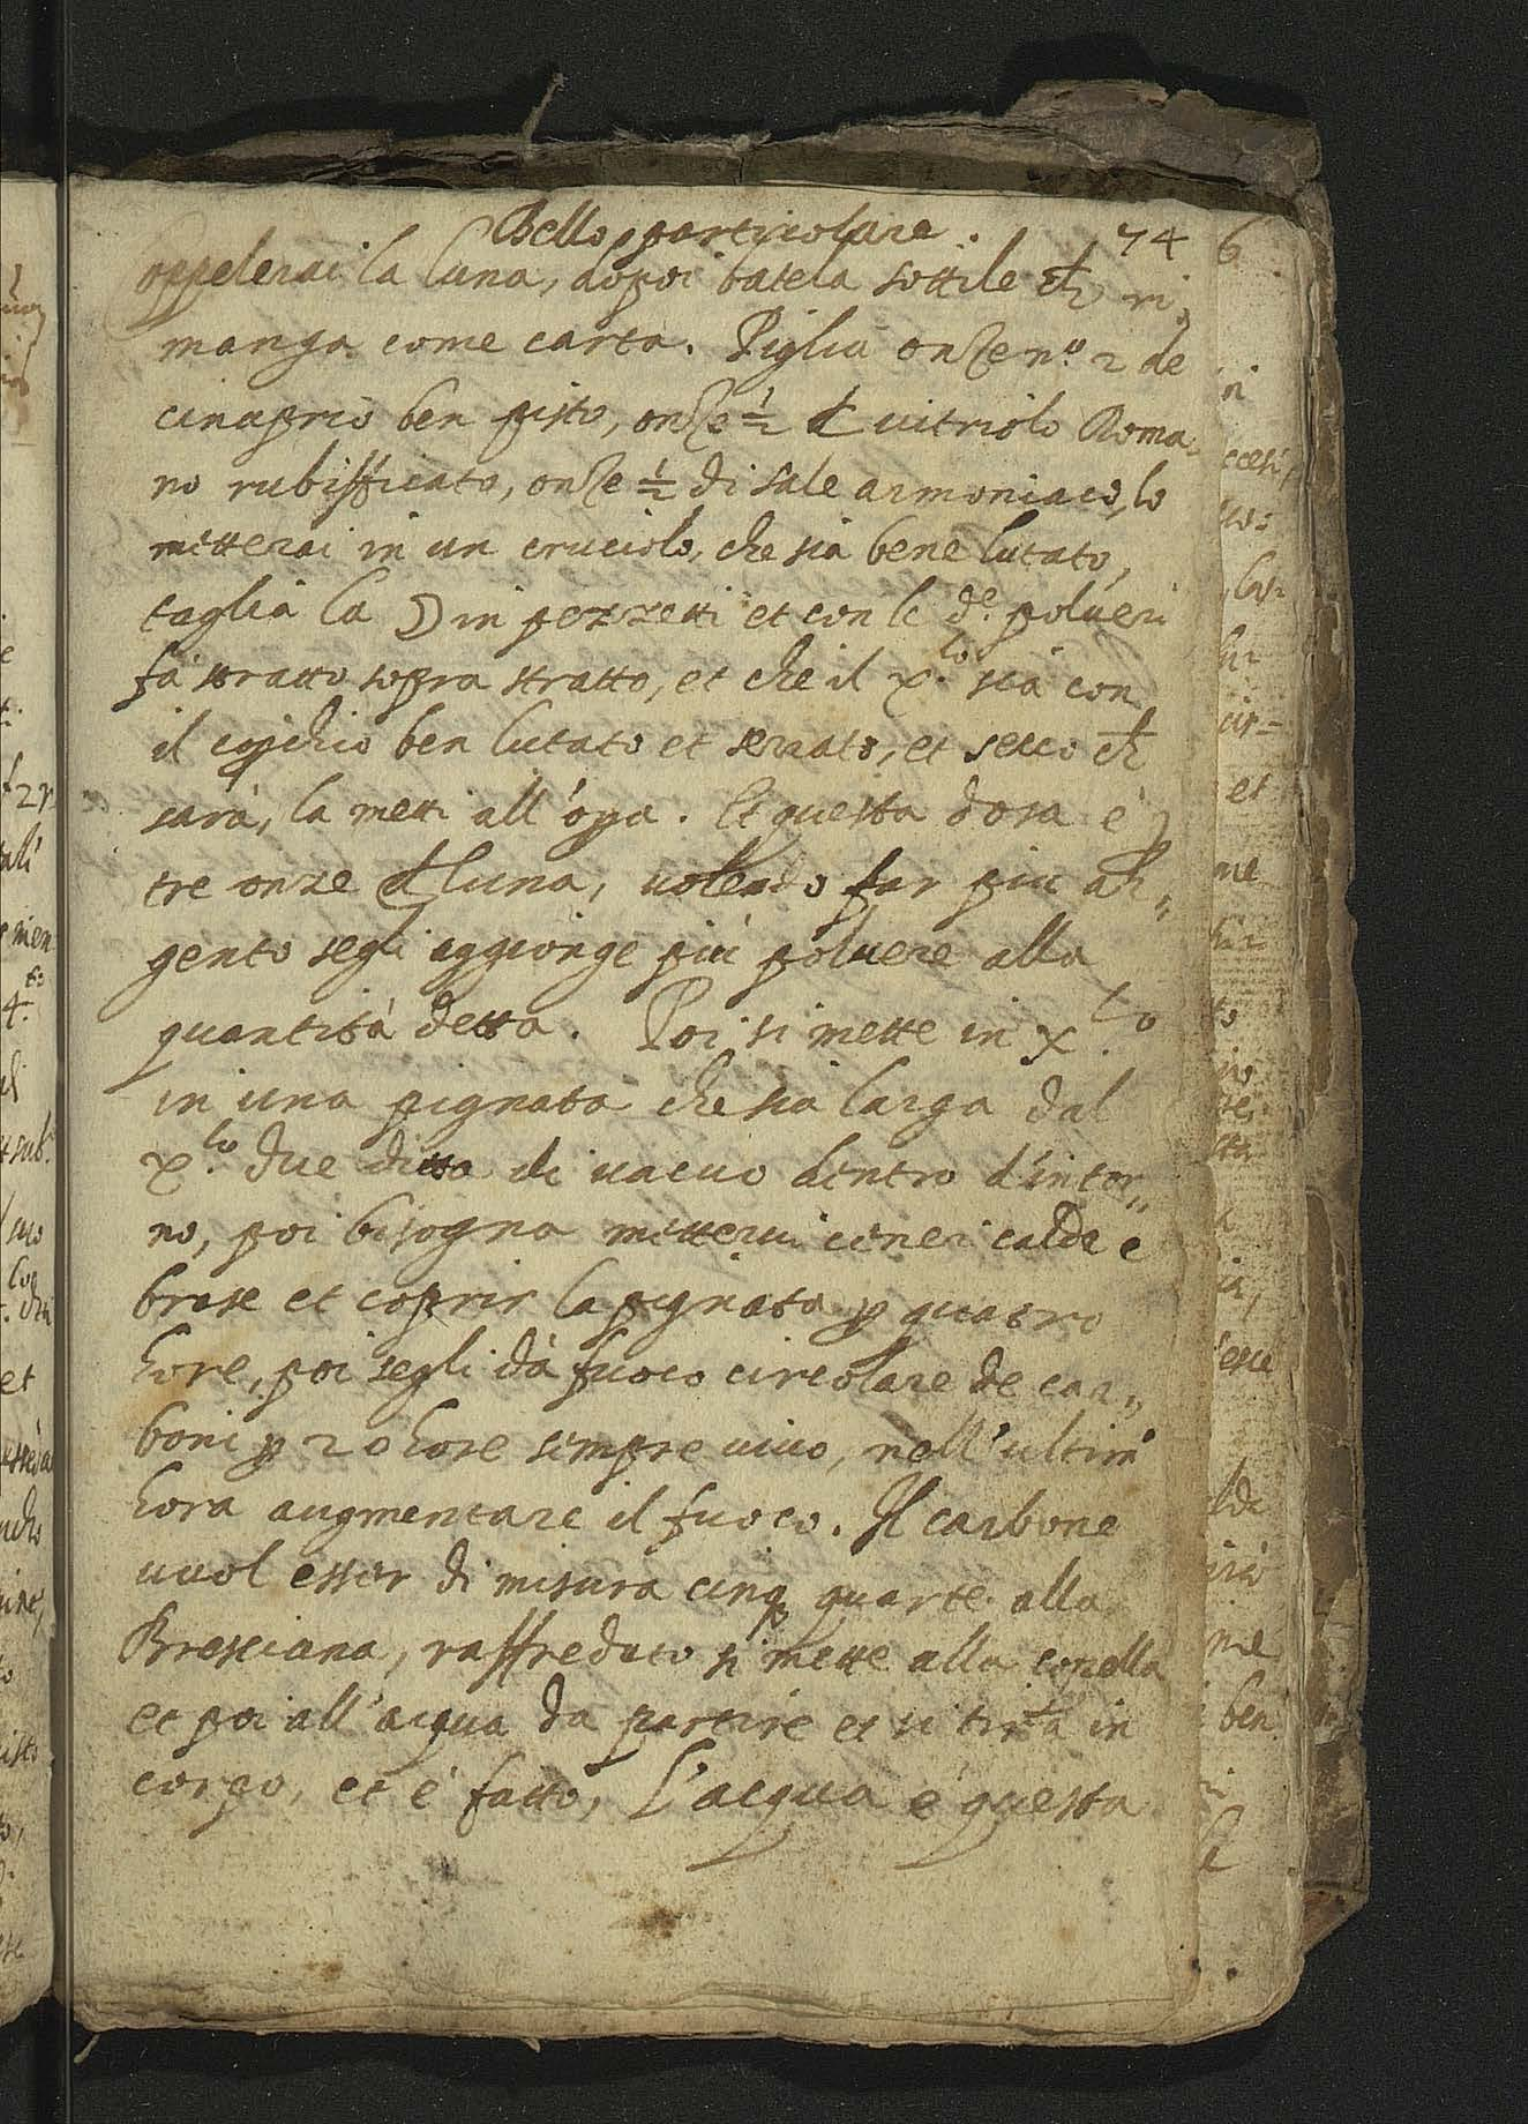 Bello particolare. 74
Coppelerai la luna, dopoi batela sottile ch̄ ri,
manga come carta. Piglia onze nº. 2 de
cinaprio ben pisto, onze ½ d uitriolo Roma,
no rubifficato, onze ½ di sale armoniaco, lo
mitterai in un cruciolo, che sia bene lutato,
taglia la ☽ in pezzetti et con le d.e polueri
fa stratto sopra stratto, et che il x.lo sia con
il copichio ben lutato et serrato, et secco ch̄
sarà, la metti all'opa. Et questa dosa è p
tre onze d luna, uolendo far piu ar,,
gento segli aggionge più poluere alla
quantità detta. Poi si mette in x.lo
in una pignata che sia larga dal
x.lo due ditta di uacuo dentro d'intor,,
no, poi bisogna metterui ceneri calde e
brase et coprir la pignata p quatro
hore, poi segli dà fuoco circolare de car,,
boni p 20 hore sempre uiuo, nell'ultima
hora augmentare il fuoco. Il carbone
uuol esser di misura cinq quarte alla
Bresciana, raffredato si mette alla copella
et poi all'acqua da partire et si in
corpo, et è fatto, L'acqua è questa